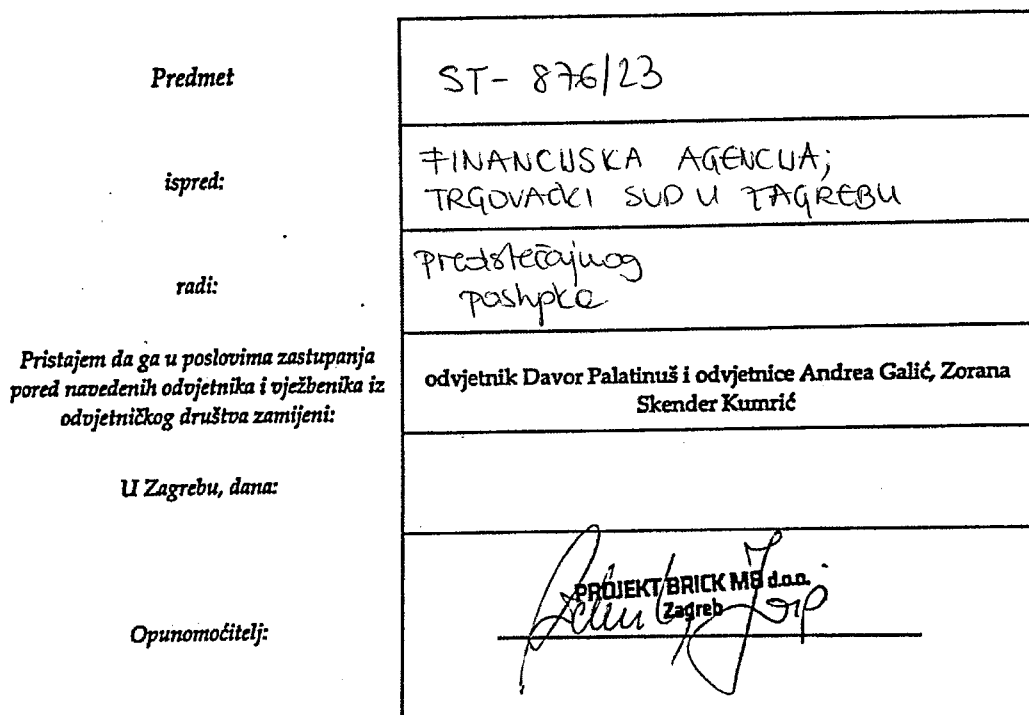 Predmet
ST- 876/23
ispred:
FINANCIJSKA AGENCIJA;
TRGOVAČKI SUD U ZAGREBU
radi:
predstečajnog
postupka
Pristajem da ga u poslovima zastupanja
pored navedenih odvjetnika i vježbenika iz
odvjetničkog društva zamijeni:
odvjetnik Davor Palatinuš i odvjetnice Andrea Galić, Zorana
Skender Kumrić
U Zagrebu, dana:
Opunomoćitelj:
PROJEKT BRICK MB d.o.o.
Zagreb